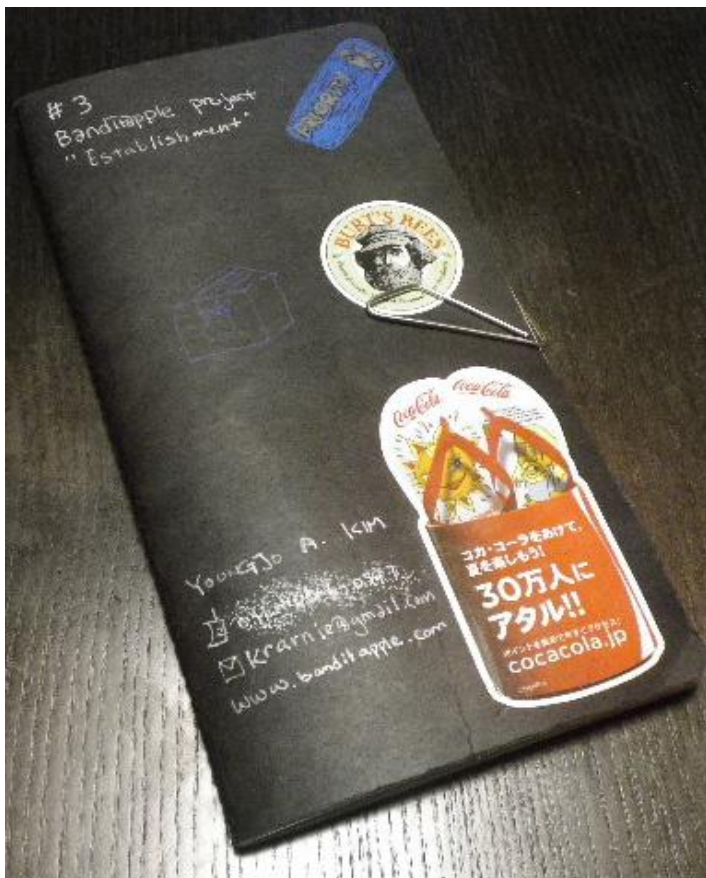 # 3
Banditapple project
"Establishment"
PRIORITY
BURT'S BEES
Coca-Cola Coca-Cola
コカ・コーラをあけて、
夏を楽しもう!
30万人に
アタル!!
cocacola.jp
YOUNGJO A. KIM
krarnie@gmail.com
www.banditapple.com